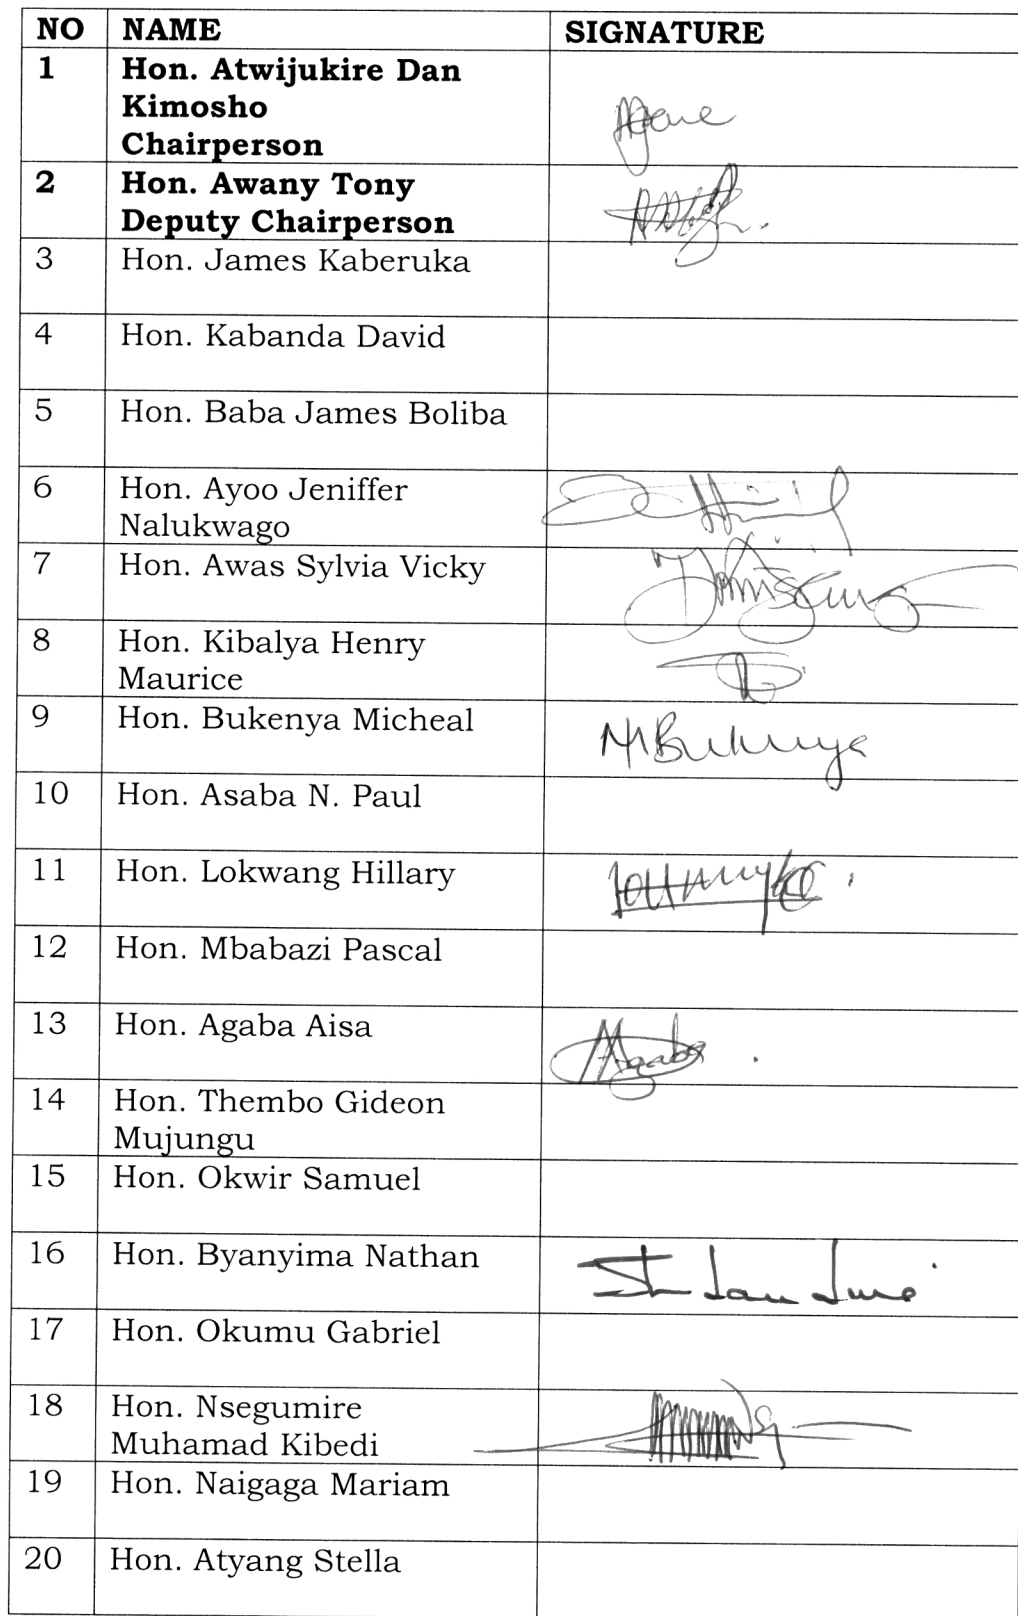 NO NAME SIGNATURE
1 Hon. Atwijukire Dan
Kimosho
Chairperson
2 Hon. Awany Tony
Deputy Chairperson
3 Hon. James Kaberuka
4 Hon. Kabanda David
5 Hon. Baba James Boliba
6 Hon. Ayoo Jeniffer
Nalukwago
7 Hon. Awas Sylvia Vicky
8 Hon. Kibalya Henry
Maurice
9 Hon. Bukenya Micheal
MBukenya
10 Hon. Asaba N. Paul
11 Hon. Lokwang Hillary
12 Hon. Mbabazi Pascal
13 Hon. Agaba Aisa
Agaba
14 Hon. Thembo Gideon
Mujungu
15 Hon. Okwir Samuel
16 Hon. Byanyima Nathan
17 Hon. Okumu Gabriel
18 Hon. Nsegumire
Muhamad Kibedi
19 Hon. Naigaga Mariam
20 Hon. Atyang Stella